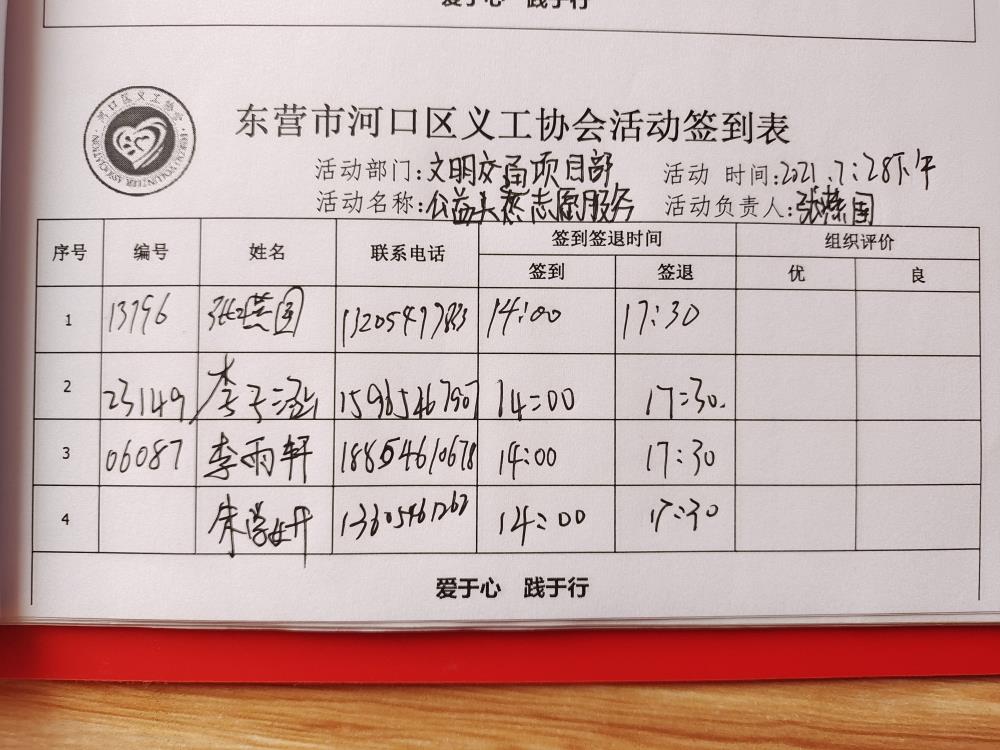 爱于心 践于行
河口区义工协会
东营市河口区义工协会活动签到表
活动部门:文明交通项目部 活动 时间:2021.7:28下午
活动名称:公益头盔志愿服务 活动负责人:张燕国
序号 编号 姓名 联系电话 签到签退时间 组织评价
签到 签退 优 良
1 13796 张燕国 14:00 17:30
2 23149 李子涵 14:00 17:30.
3 06087 李雨轩 18854610678 14:00 17:30
4 朱学妍 14:00 17:30
爱于心 践于行